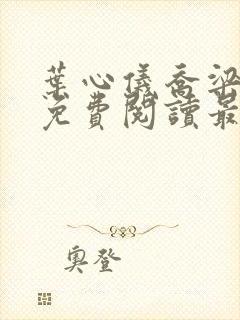 葉心儀喬梁
免費閱讀最
奧登